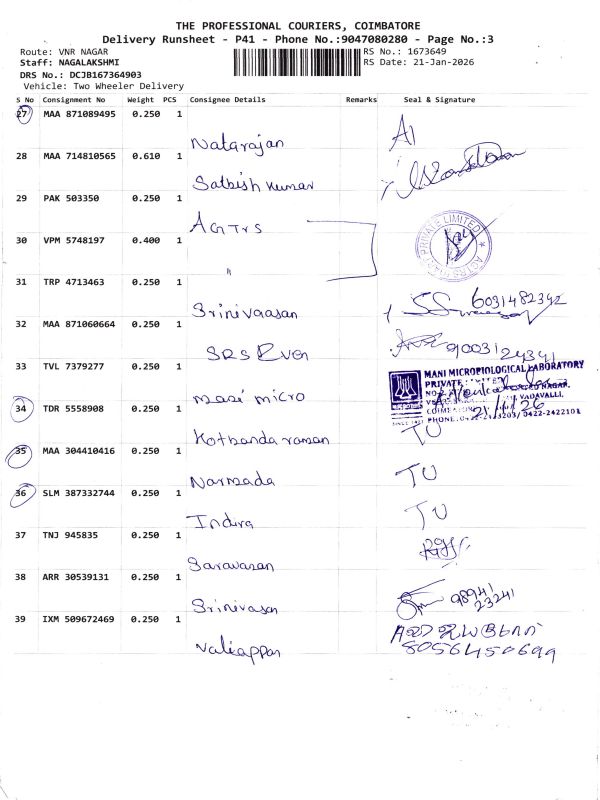 THE PROFESSIONAL COURIERS, COIMBATORE
Delivery Runsheet - P41 - Phone No.:9047080280 - Page No.:3
Route: VNR NAGAR
RS No.: 1673649
Staff: NAGALAKSHMI
RS Date: 21-Jan-2026
DRS No.: DCJB167364903
Vehicle: Two Wheeler Delivery
S No Consignment No Weight PCS Consignee Details Remarks Seal & Signature
27 MAA 871089495 0.250 1
Natarajan
28 MAA 714810565 0.610 1
Sathish Kumar
29 PAK 503350 0.250 1
AGTrs
30 VPM 5748197 0.400 1
PRIVATE LIMITED
31 TRP 4713463 0.250 1
Srinivaasan 6031482342
32 MAA 871060664 0.250 1
SRS
33 TVL 7379277 0.250 1
MANI MICROBIOLOGICAL LABORATORY
PRIVATE
mani micro
VADAVALLI,
34 TDR 5558908 0.250 1
21/1/26
0422-2422101
Kothanda raman TU
35 MAA 304410416 0.250 1
Narmada TU
36 SLM 387332744 0.250 1
Indira TU
37 TNJ 945835 0.250 1
Saravanan
38 ARR 30539131 0.250 1
Srinivasan 98941
23241
39 IXM 509672469 0.250 1
Valiappan 8056450699